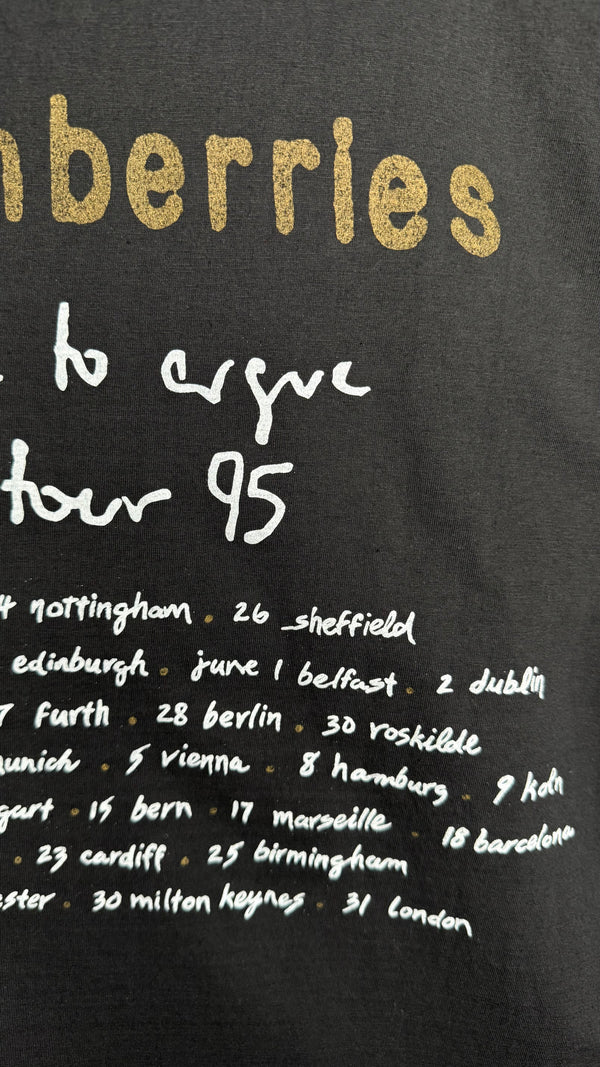 nberries
to argue
tour 95
4 nottingham . 26 sheffield
edinburgh . june 1 belfast . 2 dublin
7 furth . 28 berlin . 30 roskilde
munich . 5 vienna . 8 hamburg . 9 koln
gart . 15 bern . 17 marseille . 18 barcelona
. 23 cardiff . 25 birmingham
ester . 30 milton keynes . 31 london